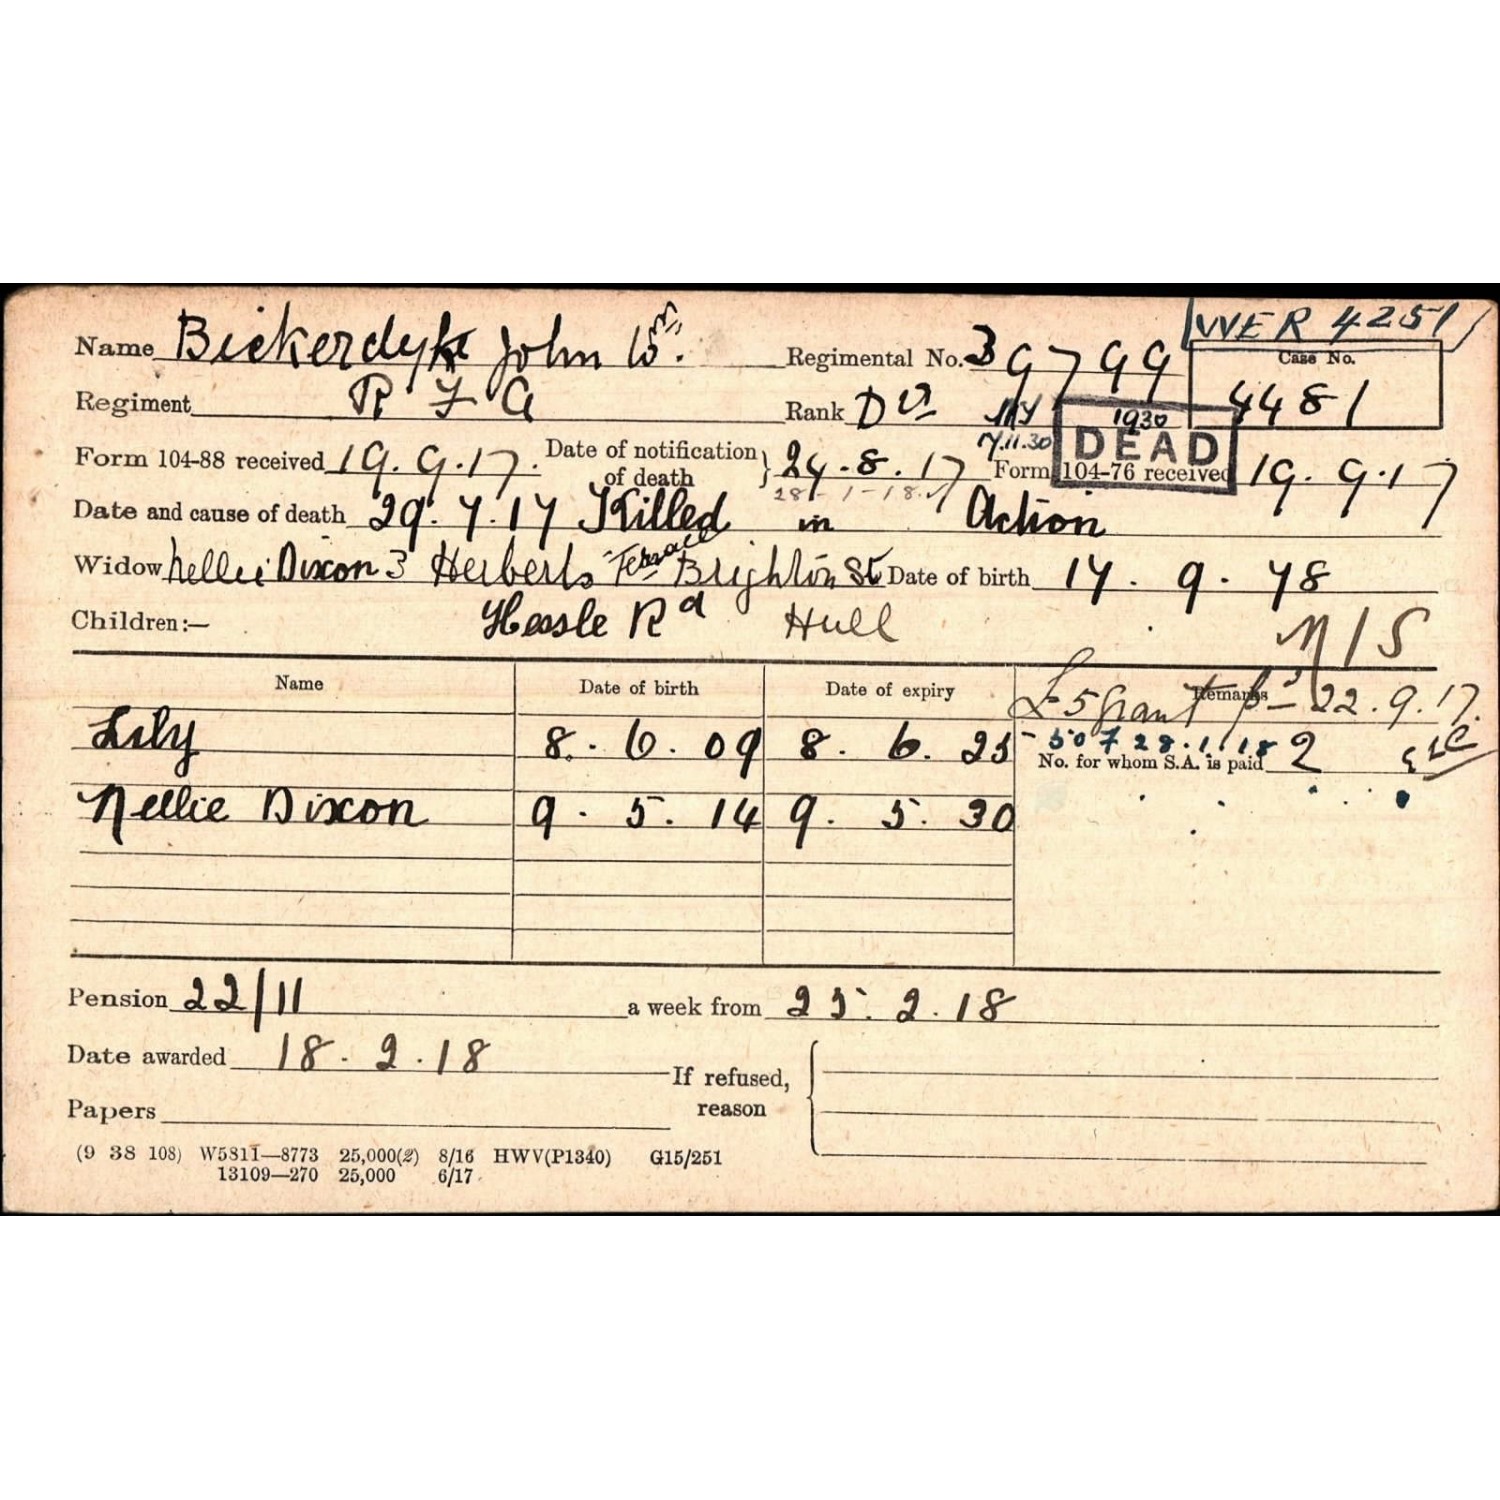 WER 4251
Name Bickerdyke John Wm. Regimental No. 39799 Case No. 4481
Regiment R F A Rank Dvr 1930
7.11.30 DEAD
Form 104-88 received 19.9.17. Date of notification of death } 24.8.17 Form 104-76 received 19.9.17
28-1-18
Date and cause of death 29.7.17 Killed in Action
Widow Nellie Dixon 3 Herberts Terrace Brighton St Date of birth 17.9.78
Children:— Hessle Rd Hull
M/S
Name Date of birth Date of expiry Remarks
£5 grant pd 22.9.17.
Lily 8.6.09 8.6.25
28.1.18
No. for whom S.A. is paid 2
Nellie Dixon 9.5.14 9.5.30
Pension 22/11 a week from 25.2.18
Date awarded 18.2.18
If refused, reason
Papers
(9 38 108) W5811—8773 25,000(2) 8/16 HWV(P1340) G15/251
13109—270 25,000 6/17